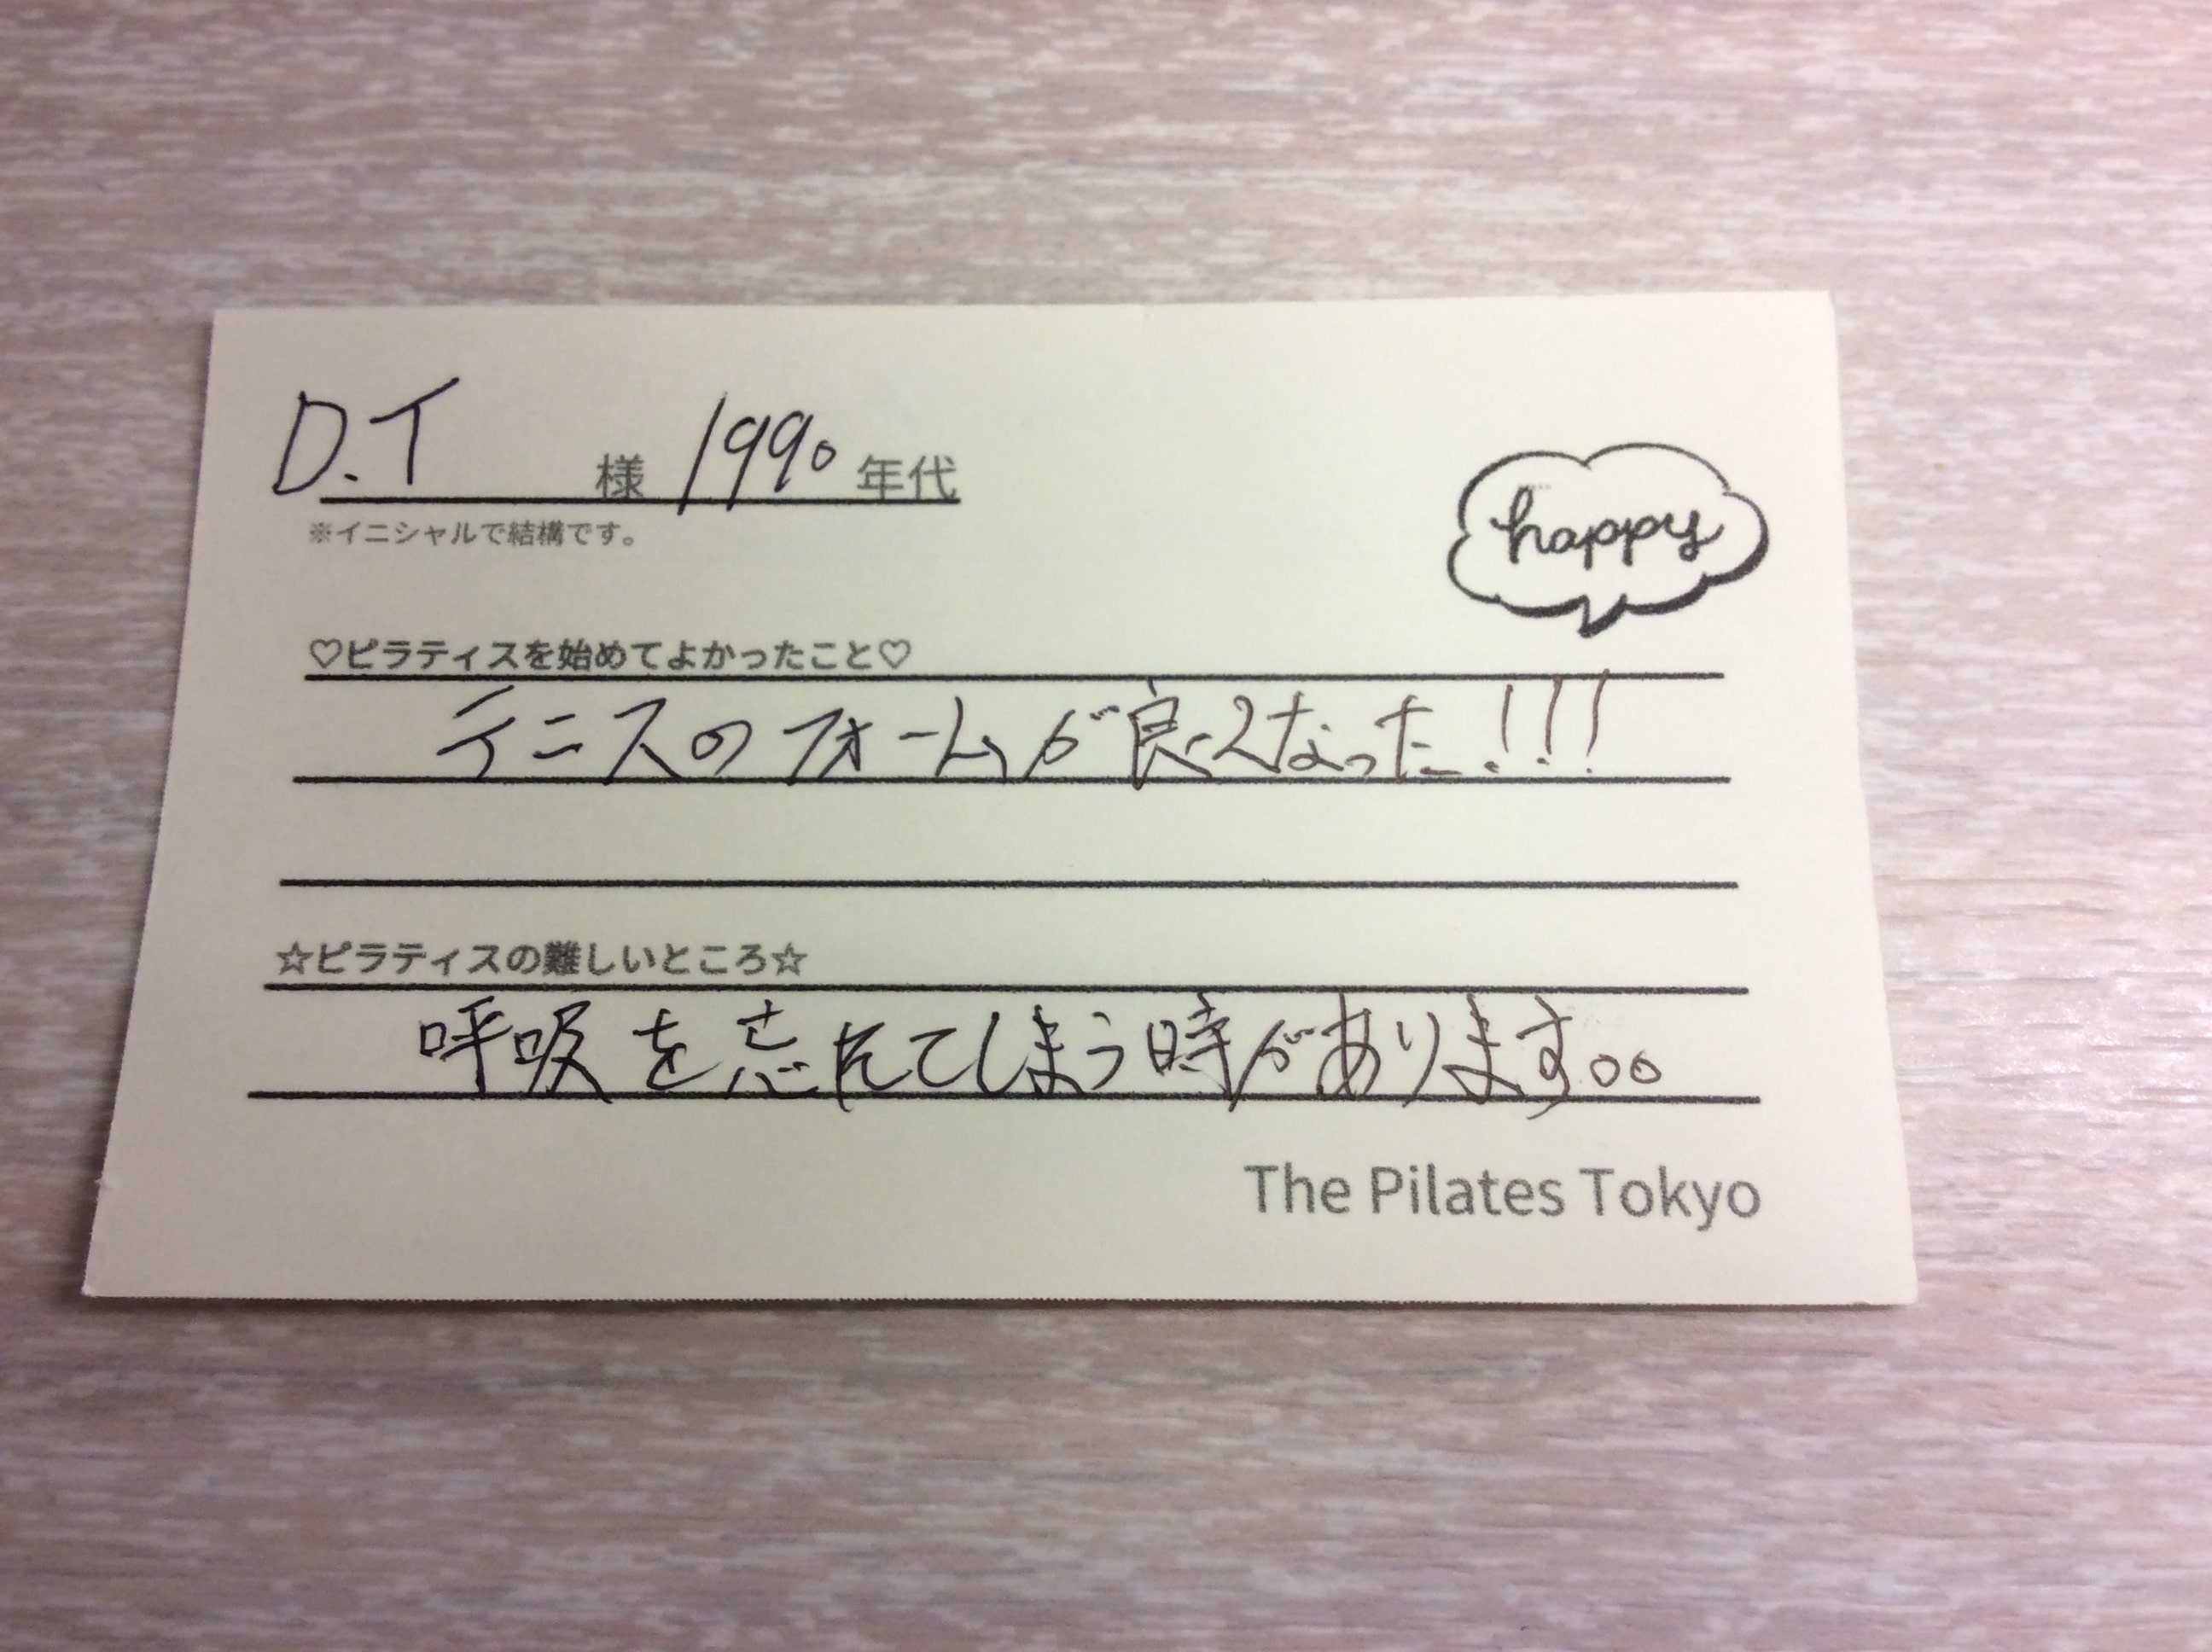 D.T 様 1990年代
※イニシャルで結構です。
happy
♡ピラティスを始めてよかったこと♡
テニスのフォームが良くなった!!!
☆ピラティスの難しいところ☆
呼吸を忘れてしまう時があります。。
The Pilates Tokyo